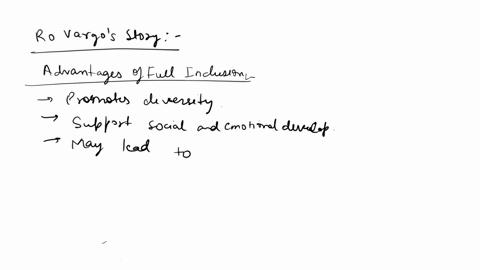 Ro Vargo's Story:-
Advantages of Full Inclusion
→ Promotes diversity.
→ Support social and emotional develop.
→ May lead to